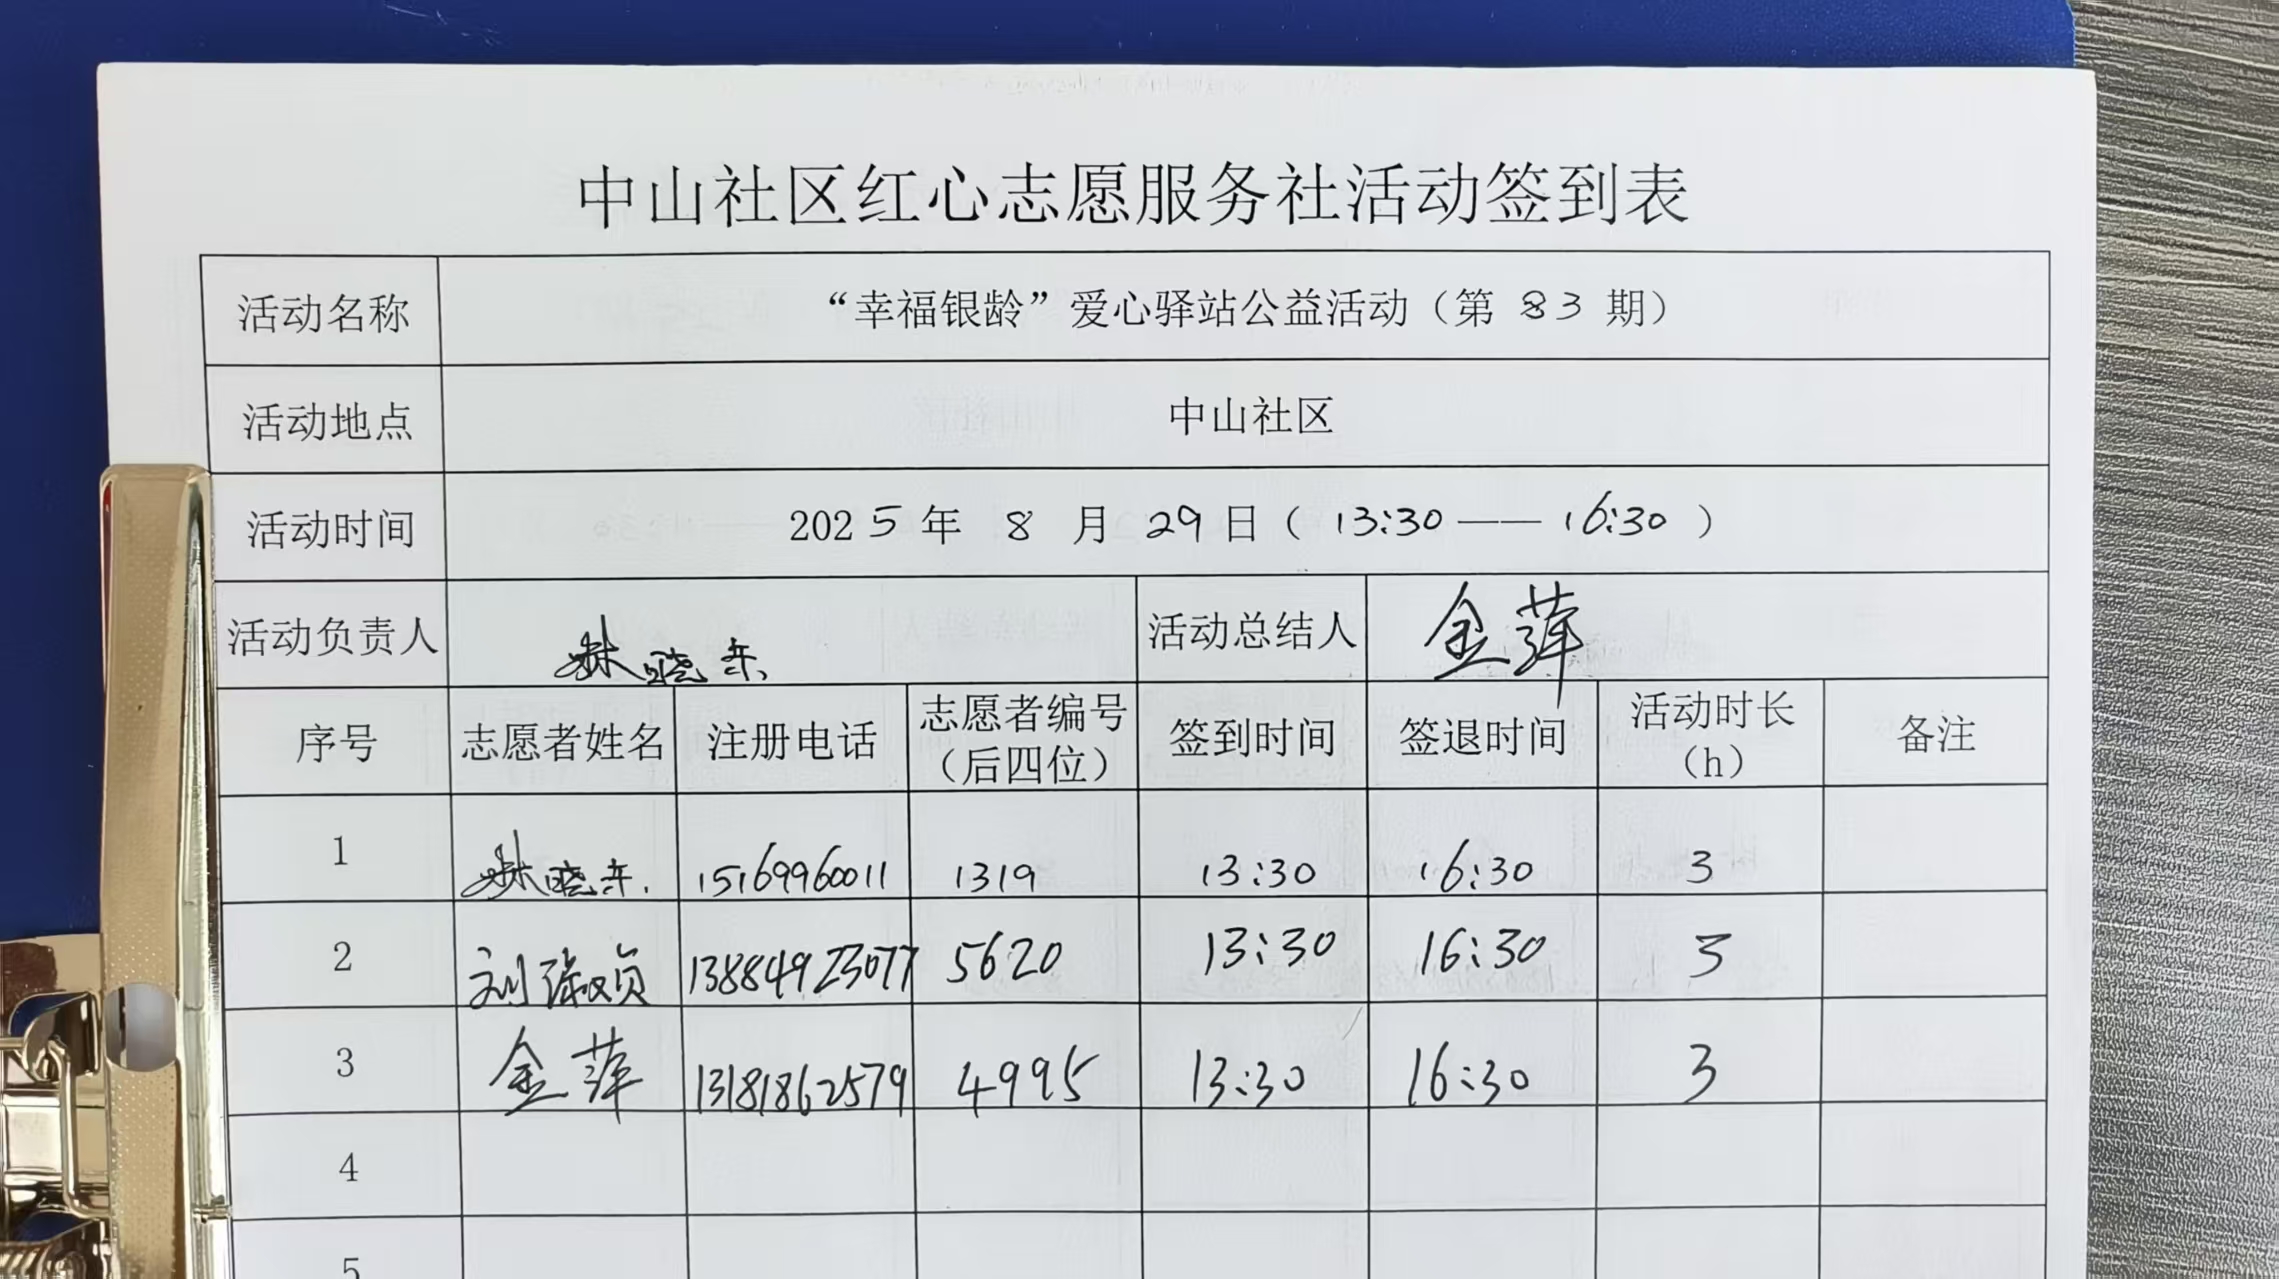 中山社区红心志愿服务社活动签到表
活动名称 “幸福银龄”爱心驿站公益活动（第 83 期）
活动地点 中山社区
活动时间 2025年 8 月 29日（ 13:30 —— 16:30 ）
活动负责人 林晓东 活动总结人 金萍
序号 志愿者姓名 注册电话 志愿者编号（后四位） 签到时间 签退时间 活动时长（h） 备注
1 林晓东 15169960011 1319 13:30 16:30 3
2 刘 贞 13884923077 5620 13:30 16:30 3
3 金萍 13181862579 4995 13:30 16:30 3
4
5